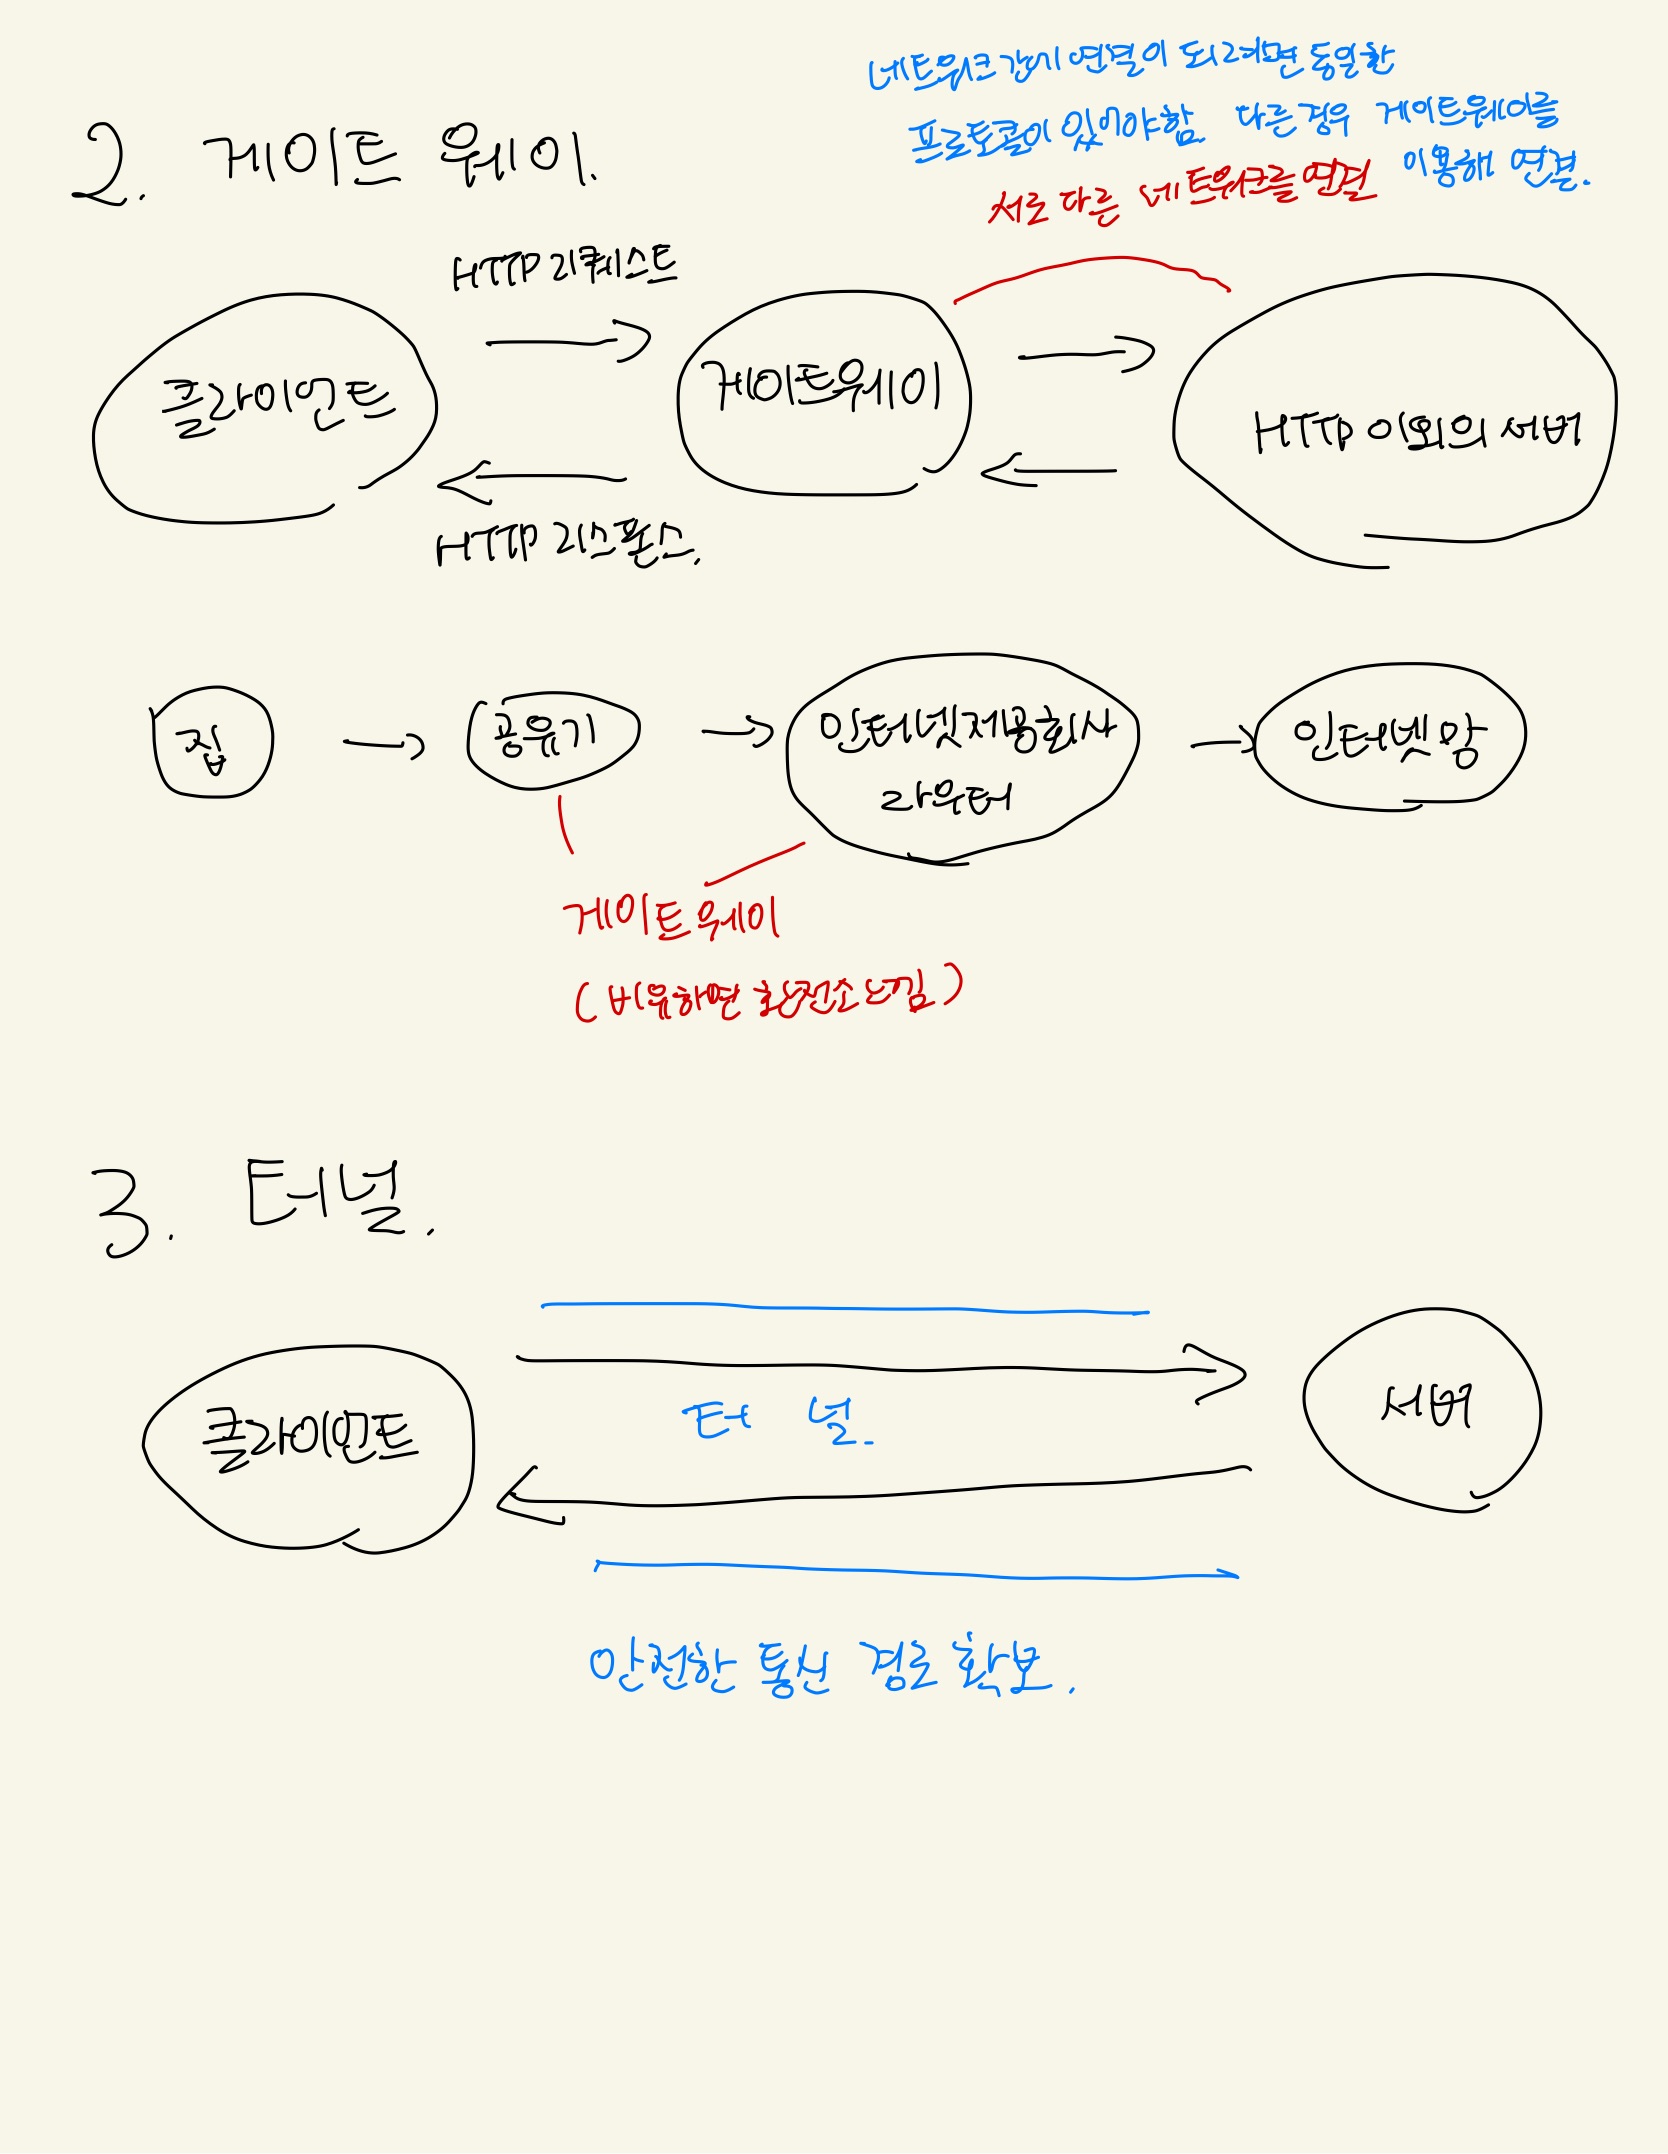 네트워크 간에 연결이 되려면 동일한
프로토콜이 있어야함. 다른 경우 게이트웨이를
이용해 연결.
2. 게이트 웨이.
서로 다른 네트워크를 연결
HTTP 리퀘스트
클라이언트
게이트웨이
HTTP 이외의 서버
HTTP 리스폰스.
집
공유기
인터넷제공회사
라우터
인터넷망
게이트웨이
(비유하면 환전소 느낌)
3. 터널.
클라이언트
터 널.
서버
안전한 통신 경로 확보.